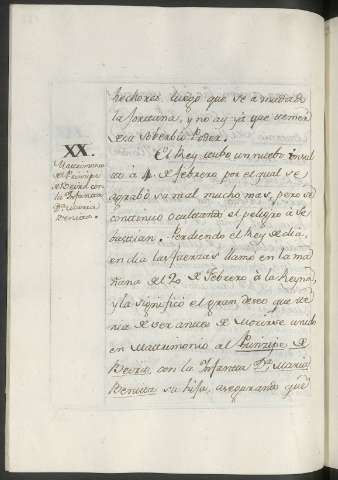 hechores luego que se a mudado
la fortuna, y no ay ya que temer
su soberbio Poder.
XX.
Matrimonio
del Principe
de Beira con
la Infanta
Dª Maria
Benita.
El Rey tubo un nuebo insul
to à 4 de febrero por el qual se
agrabó su mal mucho mas, pero se
continuó ocultando el peligro à Se
bastian. Perdiendo el Rey de dia,
en dia las fuerzas llamo en la ma
ñana del 20 de Febrero à la Reyna
y la significó el gran deseo que te
nia de ver antes de morirse unido
en Matrimonio al Principe de
Beira, con la Infanta Dª Maria
Benita su hija, asegurando que